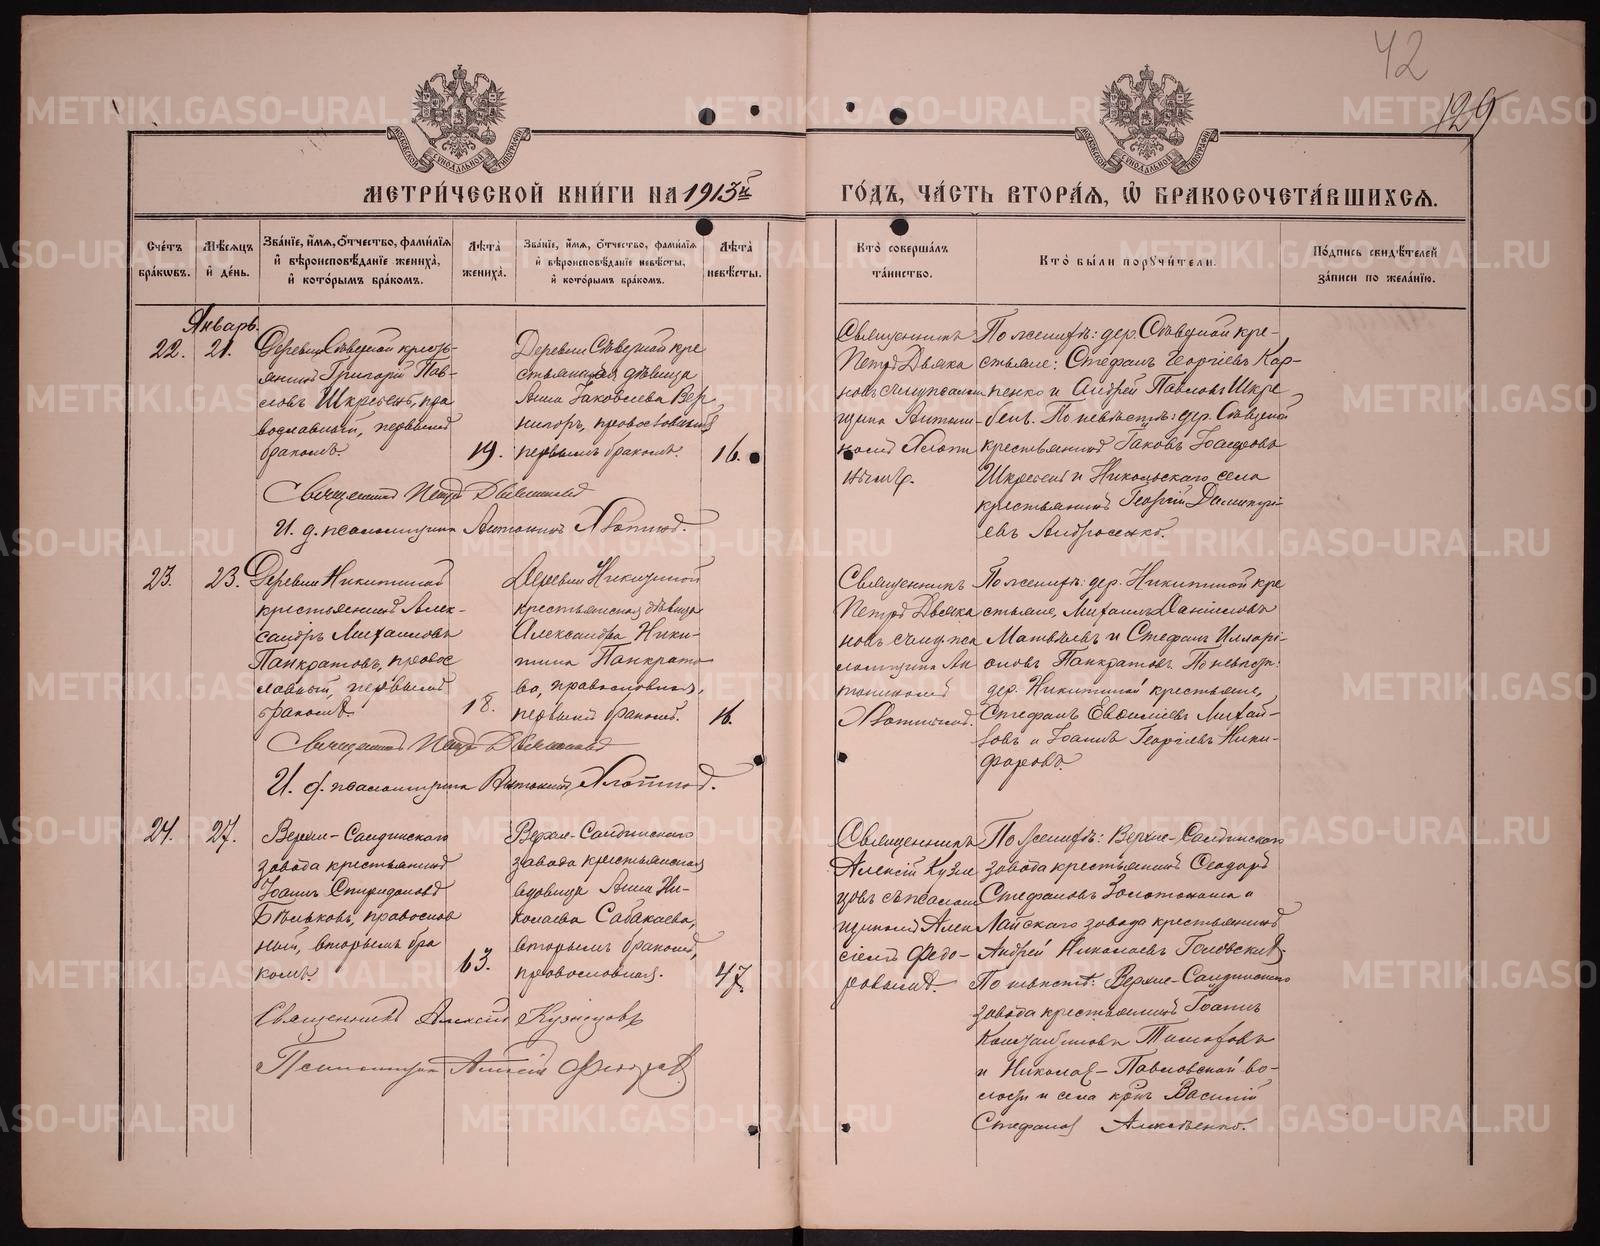 42
129
МЕТРИ́ЧЕСКОЙ КНИ́ГИ НА 1913й
ГО́ДЪ, ЧА́СТЬ ВТОРА́Я, Ѡ҆ БРАКОСОЧЕТА́ВШИХСЯ.
Сче́тъ бра́ковъ.
Мѣ́сяцъ и҆ де́нь.
Зва́нїе, и҆́мя, ѻ҆́тчество, фами́лїя и҆ вѣроисповѣ́данїе жениха̀, и҆ кото́рымъ бра́комъ.
Лѣ́та жениха̀.
Зва́нїе, и҆́мя, ѻ҆́тчество, фами́лїя и҆ вѣроисповѣ́данїе невѣ́сты, и҆ кото́рымъ бра́комъ.
Лѣ́та невѣ́сты.
Кто̀ соверша́лъ та́инство.
Кто̀ бы́ли порꙋчи́тели.
По́дпись свидѣ́телей за́писи по жела́нїю.
Январь.
22.
21.
Деревни Сѣверной кресть-
янинъ Григорій Пав-
ловъ Шкребень, пра
вославный, первымъ
бракомъ.
19.
Деревни Сѣверной кре
стьянская дѣвица
Анна Іаковлева Вер
нигоръ, православная
первымъ бракомъ.
16.
Священникъ
Петръ Дьяка
новъ съ и д псалом
щика Антони-
номъ
По женихѣ: дер. Сѣверной кре-
стьяне: Стефанъ Георгіевъ Кар-
пенко и Андрей Павловъ Шкре
бень. По невѣстѣ: дер. Сѣверной
крестьянинъ Іаковъ
Шкребень и Никольскаго села
крестьянинъ Георгій Димитрі-
евъ Андросенко.
Священникъ Петръ
И. д. псаломщика Антонинъ
23.
23.
Деревни Никитиной
крестьянинъ Алек-
сандръ Михаиловъ
Панкратовъ, правос
лавный, первымъ
бракомъ.
18.
Деревни Никитиной
крестьянская дѣвица
Александра Ники-
тина Панкрато
ва, православная,
первымъ бракомъ.
16.
Священникъ
Петръ Дьяка
новъ съ и д пса
ломщика Ан
тониномъ
По женихѣ: дер. Никитиной кре
стьяне, Михаилъ Даніиловъ
Матвѣевъ и Стефанъ Илларі-
оновъ Панкратовъ. По невѣстѣ:
дер. Никитиной крестьяне,
Стефанъ Евфиміевъ Михай-
ловъ и Іоаннъ Георгіевъ Ники-
форовъ.
Священникъ Петръ
И. д. псаломщика Антонинъ
24.
27.
Верхне-Салдинскаго
завода крестьянинъ
Іоаннъ Спиридоновъ
Бѣльковъ, православ
ный, вторымъ бра
комъ.
63.
Верхне-Салдинскаго
завода крестьянская
вдовица Анна Ни-
колаева Сабакаева,
вторымъ бракомъ,
православная.
47.
Священникъ
Алексій Кузне
цовъ съ псалом
щикомъ Алек
сіемъ Федо-
ровымъ.
По женихѣ: Верхне-Салдинскаго
завода крестьянинъ Ѳеодоръ
Стефановъ Золотокина и
Лайскаго завода крестьянинъ
Андрей Николаевъ
По невѣстѣ: Верхне-Салдинскаго
завода крестьянинъ Іоаннъ
Константиновъ Тимофовъ
и Николо-Павловской во-
лости и села крнъ Василій
Стефановъ
Священникъ Алексій Кузнецовъ
Псаломщикъ Алексій Федоровъ
METRIKI.GASO-URAL.RU